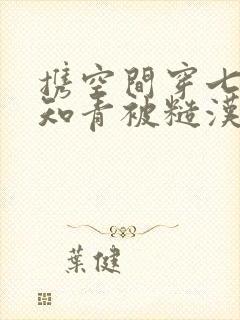 携空間穿七
知青被糙漢
葉健